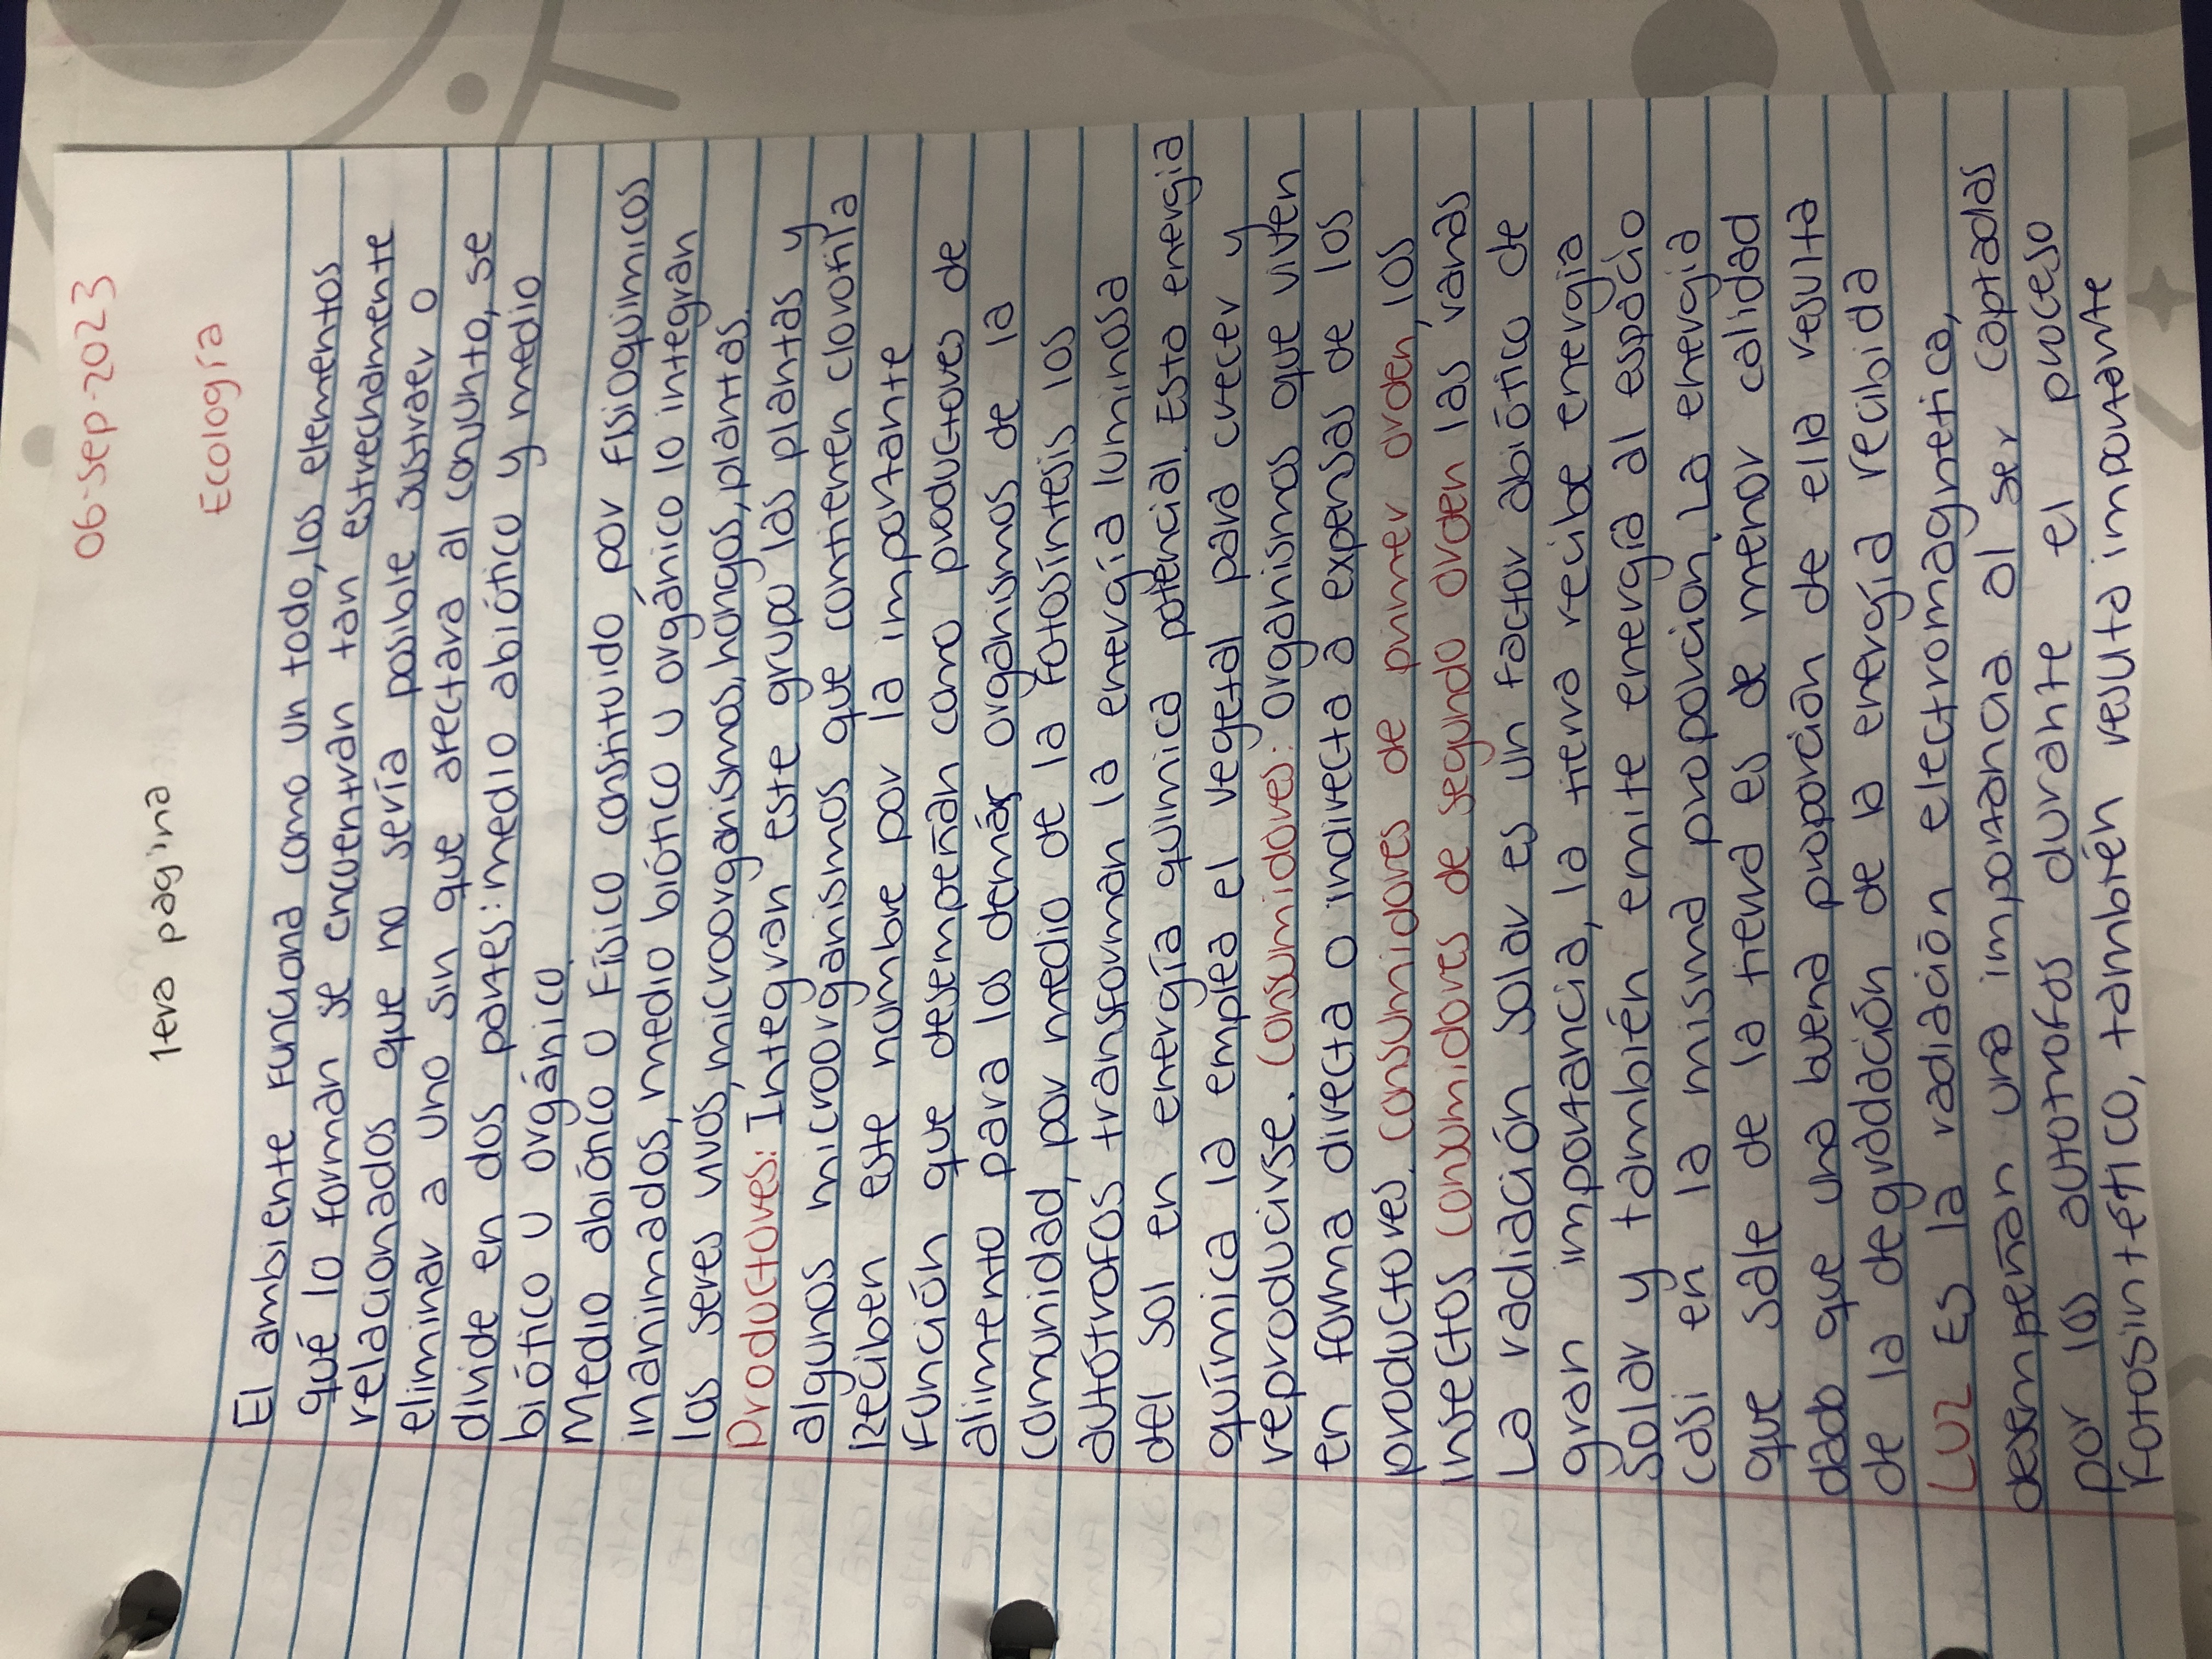 06-Sep-2023
1era pagina
Ecología
El ambiente funciona como un todo, los elementos
qué lo forman se encuentran tan estrechamente
relacionados que no sería posible sustraer o
eliminar a uno sin que afectara al conjunto, se
divide en dos partes: medio abiótico y medio
biótico u orgánico.
Medio abiótico o Físico constituido por fisioquimicos
inanimados, medio biótico u orgánico lo integran
los seres vivos, microorganismos, hongos, plantas.
Productores: Integran este grupo las plantas y
algunos microorganismos que contienen clorofila
Reciben este nombre por la importante
Función que desempeñan como productores de
alimento para los demás organismos de la
comunidad, por medio de la fotosíntesis los
autótrofos transforman la energía luminosa
del sol en energía quimica potencial. Esta energia
química la emplea el vegetal para crecer y
reproducirse. Consumidores: Organismos que viven
en forma directa o indirecta a expensas de los
productores. Consumidores de primer orden, los
insectos consumidores de segundo orden las ranas
La radiación solar es un factor abiótico de
gran importancia, la tierra recibe energia
Solar y también emite energía al espacio
casi en la misma proporcion. La energia
que sale de la tierra es de menor calidad
dado que una buena proporción de ella resulta
de la degradación de la energía recibida
Luz Es la radiación electromagnetica,
desempeñan una importancia al ser captadas
por los autotrofos durante el proceso
Fotosintético, también resulta importante